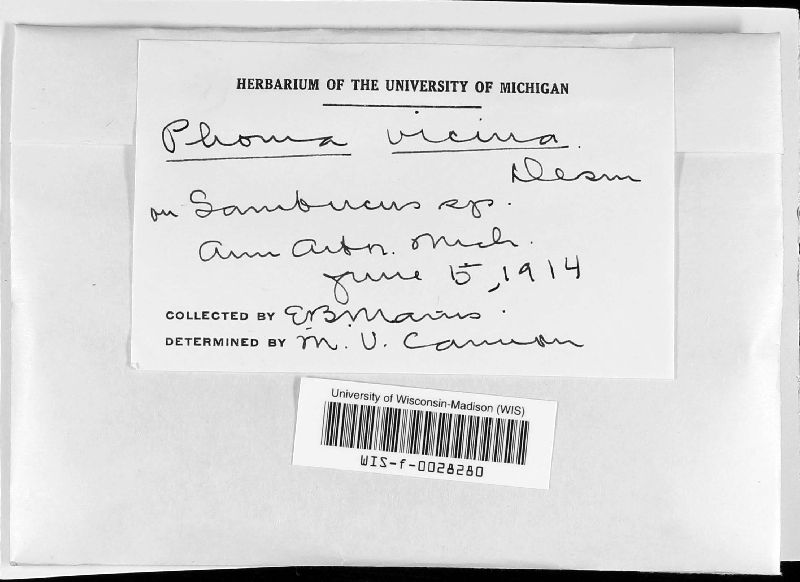 HERBARIUM OF THE UNIVERSITY OF MICHIGAN
Phoma vicina
Desm
on Sambucus sp.
Ann Arbor. Mich.
June 5, 1914
COLLECTED BY E B Mains
DETERMINED BY M. V. Cannon
University of Wisconsin-Madison (WIS)
WIS-f-0028280